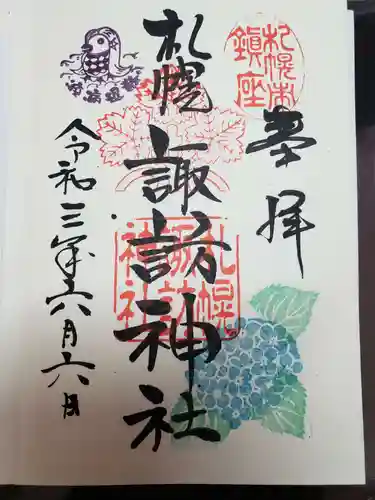 札幌市
鎮座
奉拝
札幌
諏訪神社
札幌
諏訪
神社
令和三年六月六日